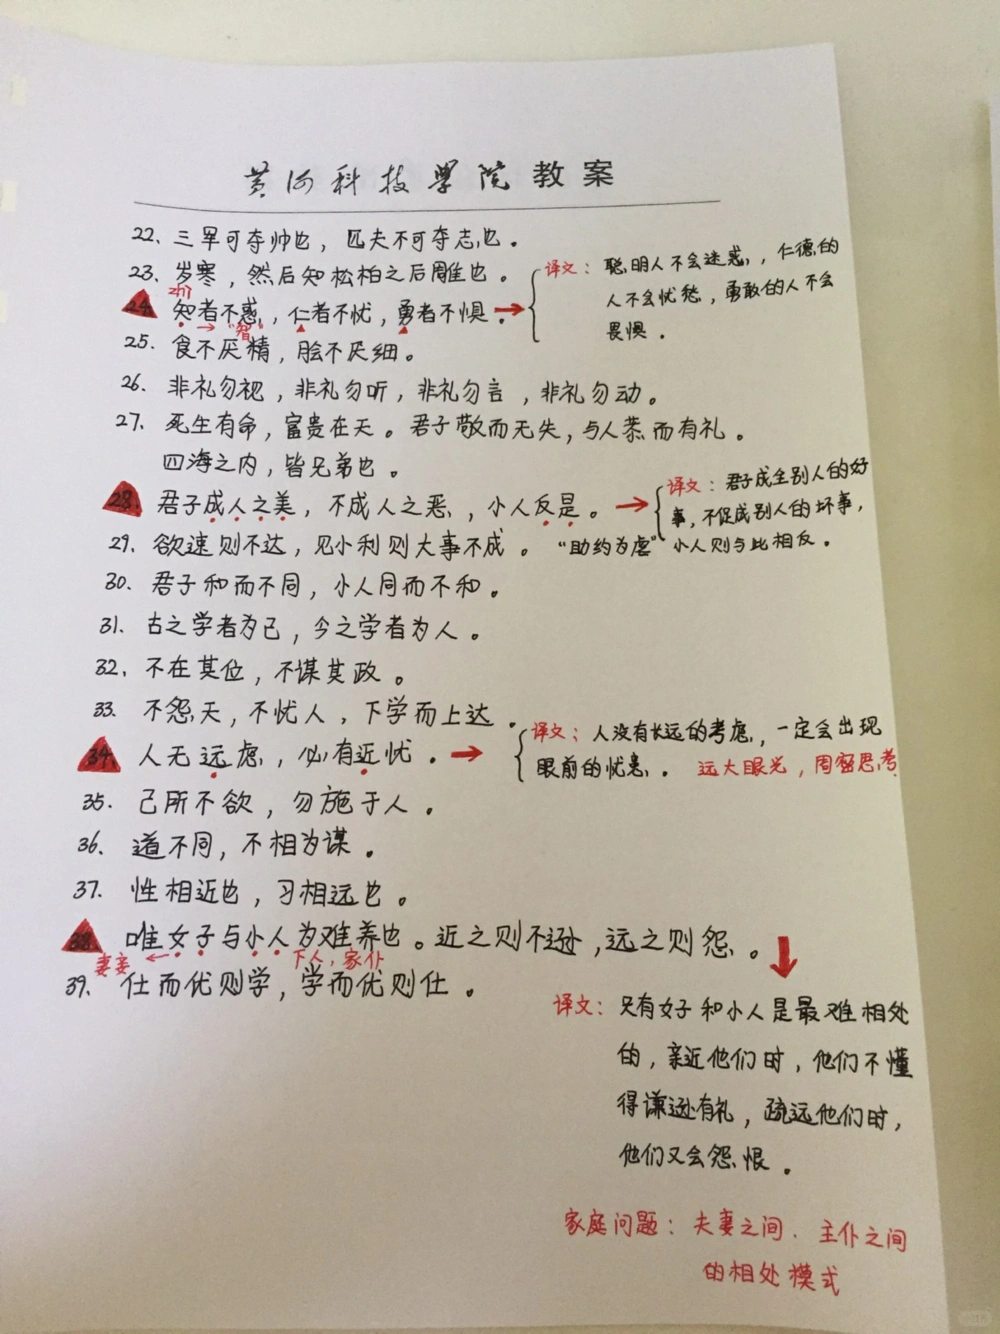 黄河科技学院 教案
22、三军可夺帅也，匹夫不可夺志也。
23、岁寒，然后知松柏之后雕也。
24、知者不惑，仁者不忧，勇者不惧。
→"智"
译文：聪明人不会迷惑，仁德的
人不会忧愁，勇敢的人不会
畏惧。
25、食不厌精，脍不厌细。
26、非礼勿视，非礼勿听，非礼勿言，非礼勿动。
27、死生有命，富贵在天。君子敬而无失，与人恭而有礼。
四海之内，皆兄弟也。
28、君子成人之美，不成人之恶，小人反是。
译文：君子成全别人的好
事，不促成别人的坏事，
小人则与此相反。
29、欲速则不达，见小利则大事不成。
"助纣为虐"
30、君子和而不同，小人同而不和。
31、古之学者为己，今之学者为人。
32、不在其位，不谋其政。
33、不怨天，不忧人，下学而上达。
34、人无远虑，必有近忧。
译文：人没有长远的考虑，一定会出现
眼前的忧患。远大眼光，周密思考
35、己所不欲，勿施于人。
36、道不同，不相为谋。
37、性相近也，习相远也。
38、唯女子与小人为难养也。近之则不逊，远之则怨。
妻妾← 下人，家仆
39、仕而优则学，学而优则仕。
译文：只有女子和小人是最难相处
的，亲近他们时，他们不懂
得谦逊有礼，疏远他们时，
他们又会怨恨。
家庭问题：夫妻之间、主仆之间
的相处模式